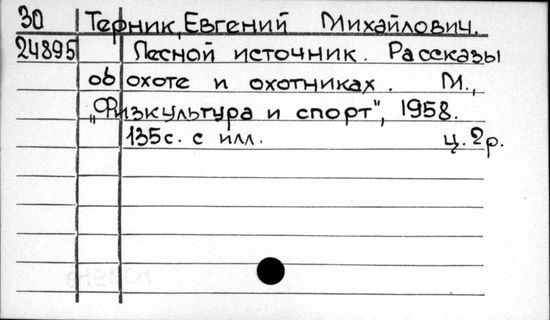 30 Терник, Евгений Михайлович.
24895 Лесной источник. Рассказы
об охоте и охотниках. М.,
„Физкультура и спорт", 1958.
135с. с илл. ц. 2р.